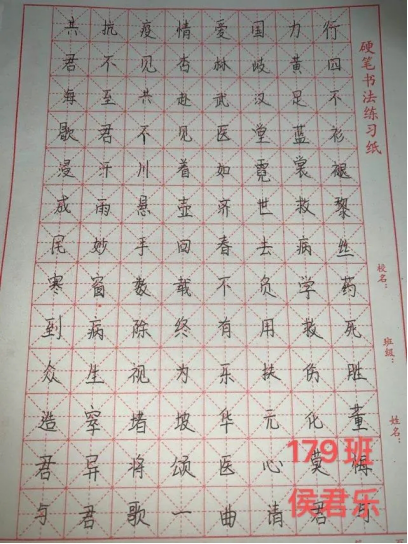 共抗疫情爱国力行
君不见杏林岐黄四
海至共赴武汉足不
歇君不见医堂蓝衫
漫汗川着如霓裳褪
成雨悬壶济世救黎
尾妙手回春去病丝
寒窗数载不负学药
到病除终有用救死
众生视为乐扶伤胜
造宰堵坡华元化董
君异将颂医心莫悔
与君歌一曲请君与
硬笔书法练习纸
校名：
班级：
姓名：
179班
侯君乐